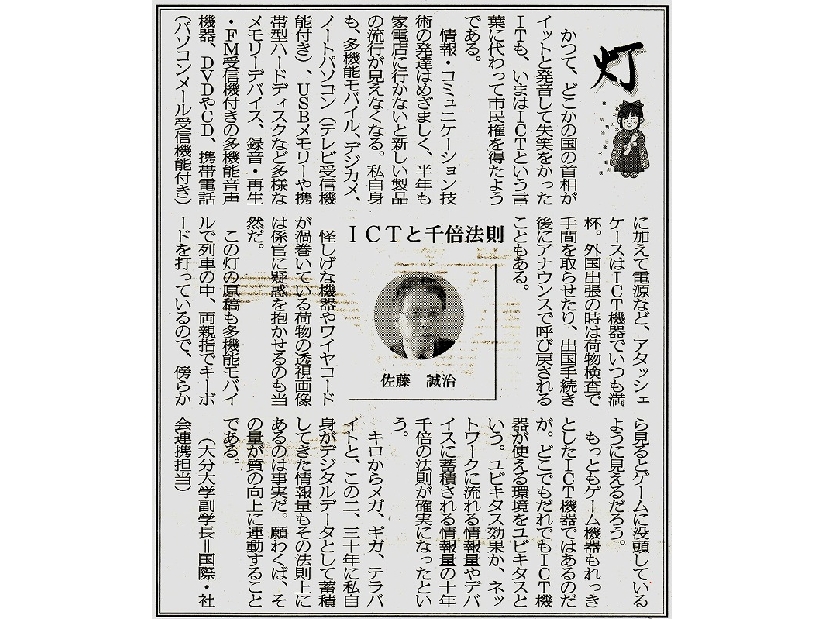 灯
かつて、どこかの国の首相が
イットと発音して失笑をかった
ITも、いまはICTという言
葉に代わって市民権を得たよう
である。
情報・コミュニケーション技
術の発達はめざましく、半年も
家電店に行かないと新しい製品
の流行が見えなくなる。私自身
も、多機能モバイル、デジカメ、
ノートパソコン(テレビ受信機
能付き)、USBメモリーや携
帯型ハードディスクなど多様な
メモリーデバイス、録音・再生
・FM受信機付きの多機能音声
機器、DVDやCD、携帯電話
(パソコンメール受信機能付き)
ICTと千倍法則
佐藤 誠治
に加えて電源など、アタッシェ
ケースはICT機器でいつも満
杯。外国出張の時は荷物検査で
手間を取らせたり、出国手続き
後にアナウンスで呼び戻される
こともある。
怪しげな機器やワイヤコード
が渦巻いている荷物の透視画像
は係官に疑惑を抱かせるのも当
然だ。
この灯の原稿も多機能モバイ
ルで列車の中、両親指でキーボ
ードを打っているので、傍らか
ら見るとゲームに没頭している
ように見えるだろう。
もっともゲーム機器もれっき
としたICT機器ではあるのだ
が。どこでもだれでもICT機
器が使える環境をユビキタスと
いう。ユビキタス効果か、ネッ
トワークに流れる情報量やデバ
イスに蓄積される情報量の十年
千倍の法則が確実になったとい
う。
キロからメガ、ギガ、テラバ
イトと、この二、三十年に私自
身がデジタルデータとして蓄積
してきた情報量もその法則上に
あるのは事実だ。願わくば、そ
の量が質の向上に連動すること
である。
(大分大学副学長=国際・社
会連携担当)